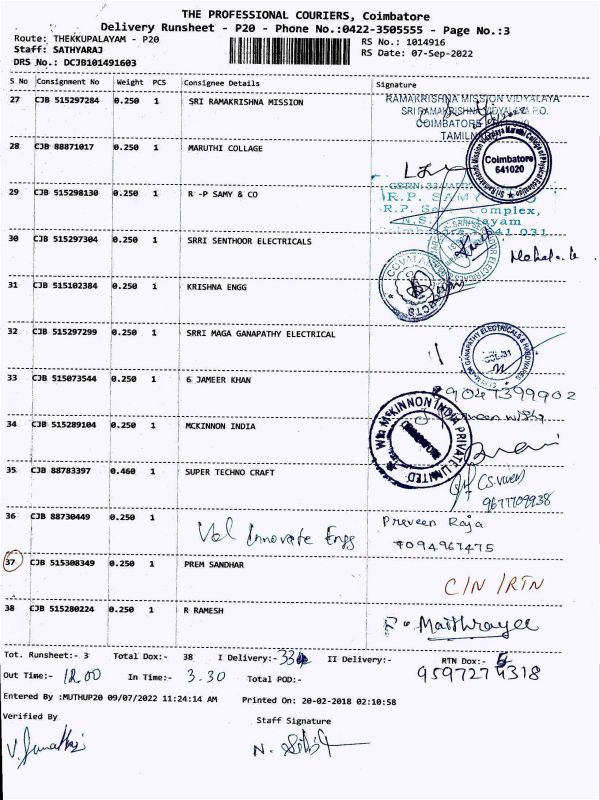 THE PROFESSIONAL COURIERS, Coimbatore
Delivery Runsheet - P20 - Phone No.:0422-3505555 - Page No.:3
Route: THEKKUPALAYAM - P20 RS No.: 1014916
Staff: SATHYARAJ RS Date: 07-Sep-2022
DRS No.: DCJB101491603
S No Consignment No Weight Pcs Consignee Details Signature
27 CJB 515297284 0.250 1 SRI RAMAKRISHNA MISSION
RAMAKRISHNA MISSION VIDYALAYA
SRI RAMAKRISHNA VIDYALAYA P.O.
COIMBATORE
TAMIL
28 CJB 88871017 0.250 1 MARUTHI COLLAGE
Coimbatore
641020
29 CJB 515298130 0.250 1 R -P SAMY & CO
R.P. SAMY
Complex,
641 031
30 CJB 515297304 0.250 1 SRRI SENTHOOR ELECTRICALS
31 CJB 515102384 0.250 1 KRISHNA ENGG
32 CJB 515297299 0.250 1 SRRI MAGA GANAPATHY ELECTRICAL
33 CJB 515073544 0.250 1 G JAMEER KHAN
9047399902
34 CJB 515289104 0.250 1 MCKINNON INDIA
MCKINNON INDIA PRIVATE LIMITED
35 CJB 88783397 0.460 1 SUPER TECHNO CRAFT
9677709938
36 CJB 88730449 0.250 1 Vel Innovate Engg Praveen Raja
7094967475
37 CJB 515308349 0.250 1 PREM SANDHAR C/N /RTN
38 CJB 515280224 0.250 1 R RAMESH R. Maithrayee
Tot. Runsheet:- 3 Total Dox:- 38 I Delivery:- 33 II Delivery:- RTN Dox:- 5
9597274318
Out Time:- 12.00 In Time:- 3.30 Total POD:-
Entered By :MUTHUP20 09/07/2022 11:24:14 AM Printed On: 20-02-2018 02:10:58
Verified By Staff Signature